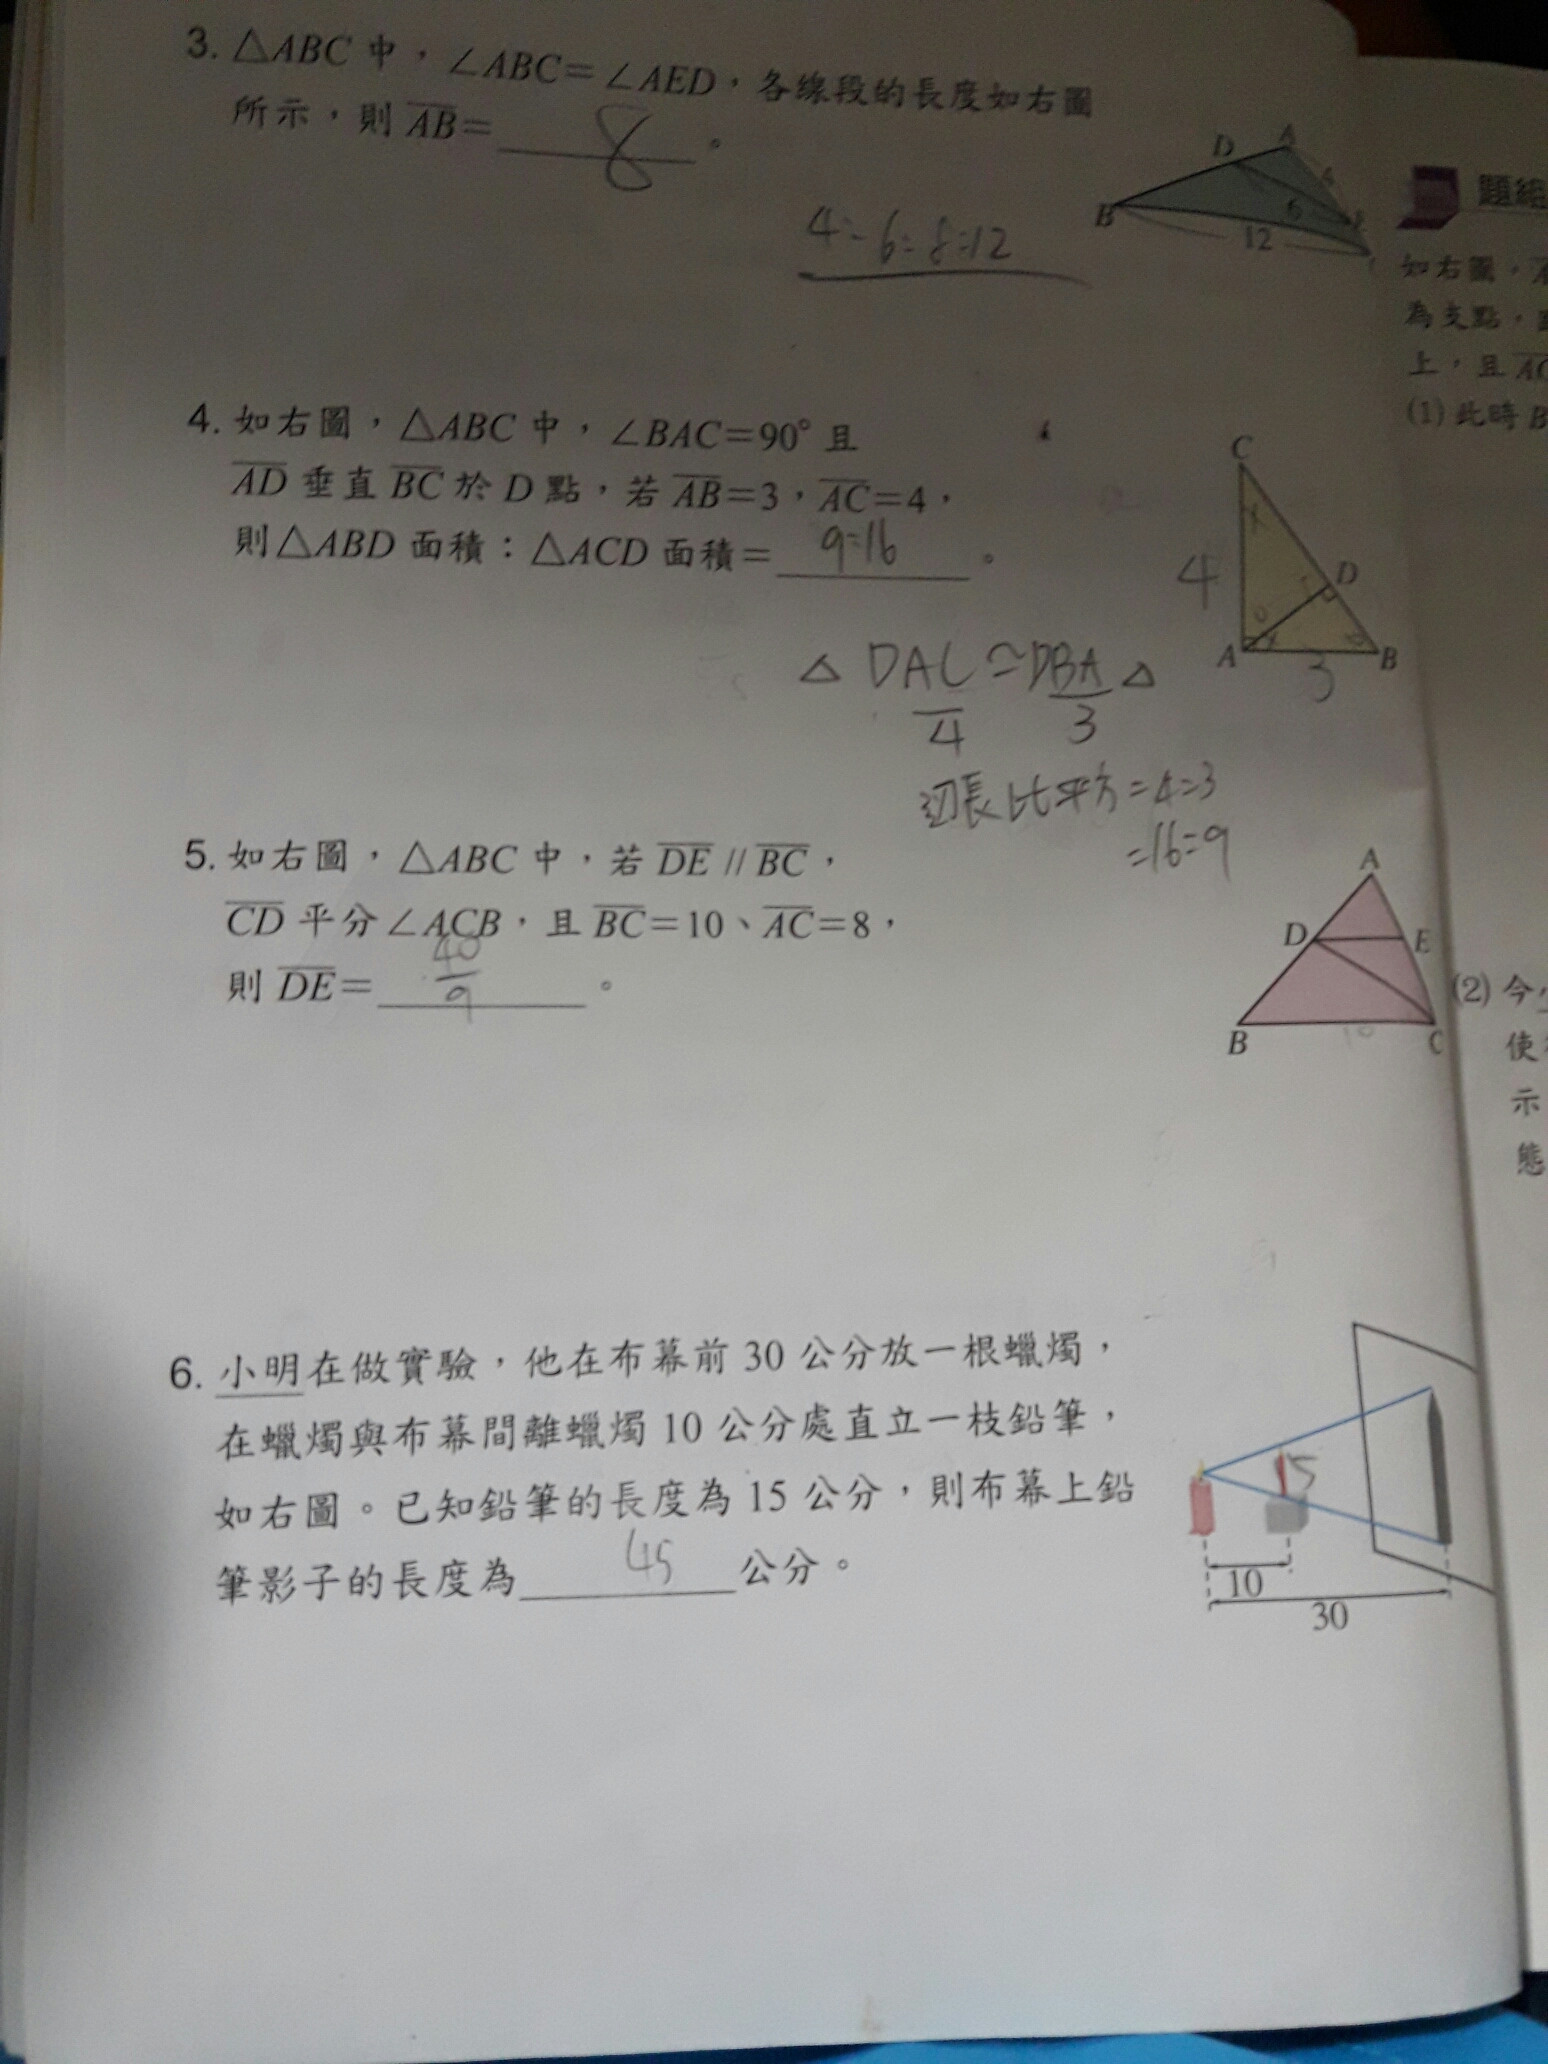 3. △ABC 中，∠ABC＝∠AED，各線段的長度如右圖
所示，則 AB＝ 8 。
4:6=8:12
D A
B 4 6 E
12
4. 如右圖，△ABC 中，∠BAC＝90° 且
AD 垂直 BC 於 D 點，若 AB＝3，AC＝4，
則△ABD 面積：△ACD 面積＝ 9:16 。
C
4 D
A 3 B
△ DAC ~ DBA △
4 3
边長比平方=4:3
=16:9
5. 如右圖，△ABC 中，若 DE // BC，
CD 平分∠ACB，且 BC＝10、AC＝8，
則 DE＝ 40/9 。
A
D E
B 10 C
6. 小明在做實驗，他在布幕前 30 公分放一根蠟燭，
在蠟燭與布幕間離蠟燭 10 公分處直立一枝鉛筆，
如右圖。已知鉛筆的長度為 15 公分，則布幕上鉛
筆影子的長度為 45 公分。
15
10
30
題組
如右圖，
為支點，
上，且 AC
(1) 此時 B
(2) 今
使
示
態